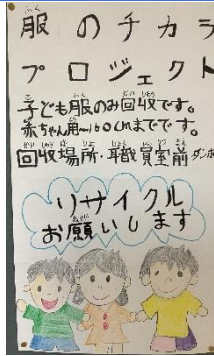 服のチカラ
プロジェクト
子ども服のみ回収です。
赤ちゃん用から160cmまでです。
回収場所・職員室前ダンボ
リサイクル
お願いします